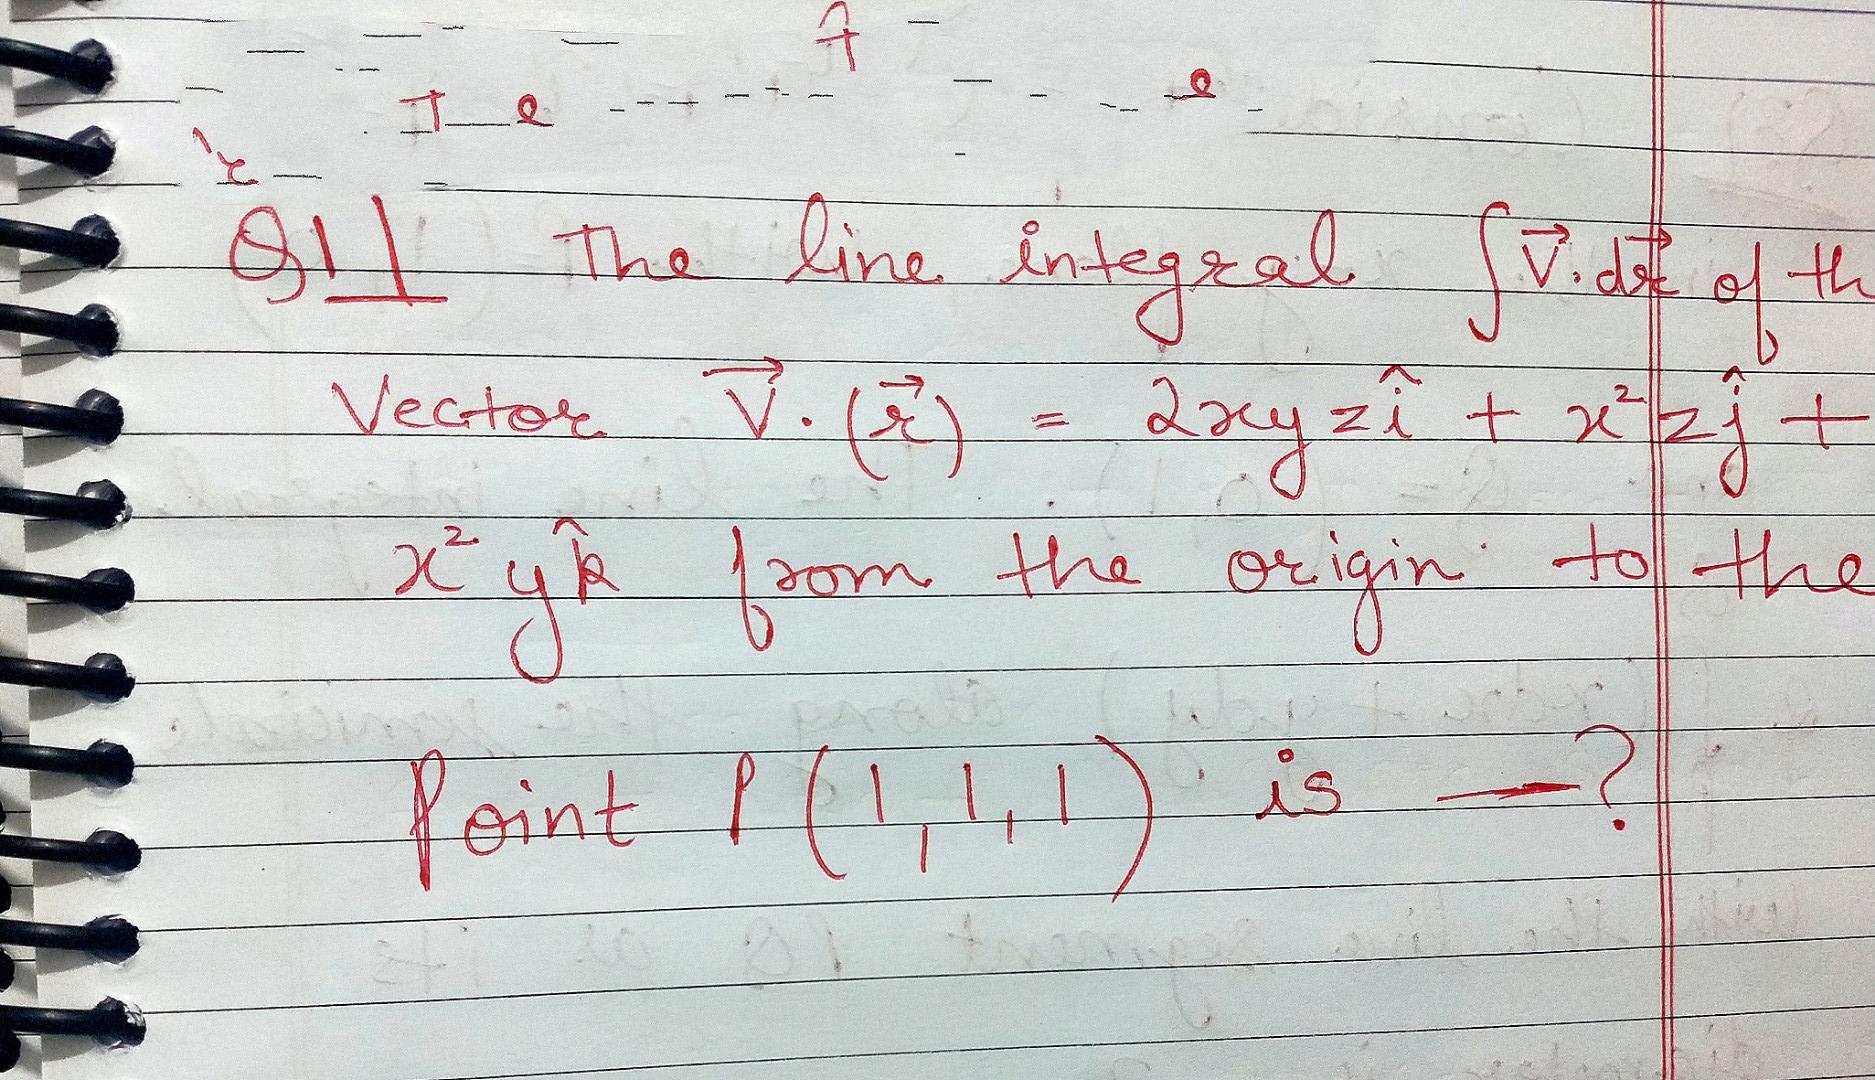 Q1 The line integral ∫V⃗.dr⃗ of th
Vector V⃗.(r⃗) = 2xyzî + x²zĵ +
x²yk̂ from the origin to the
Point P(1,1,1) is —?